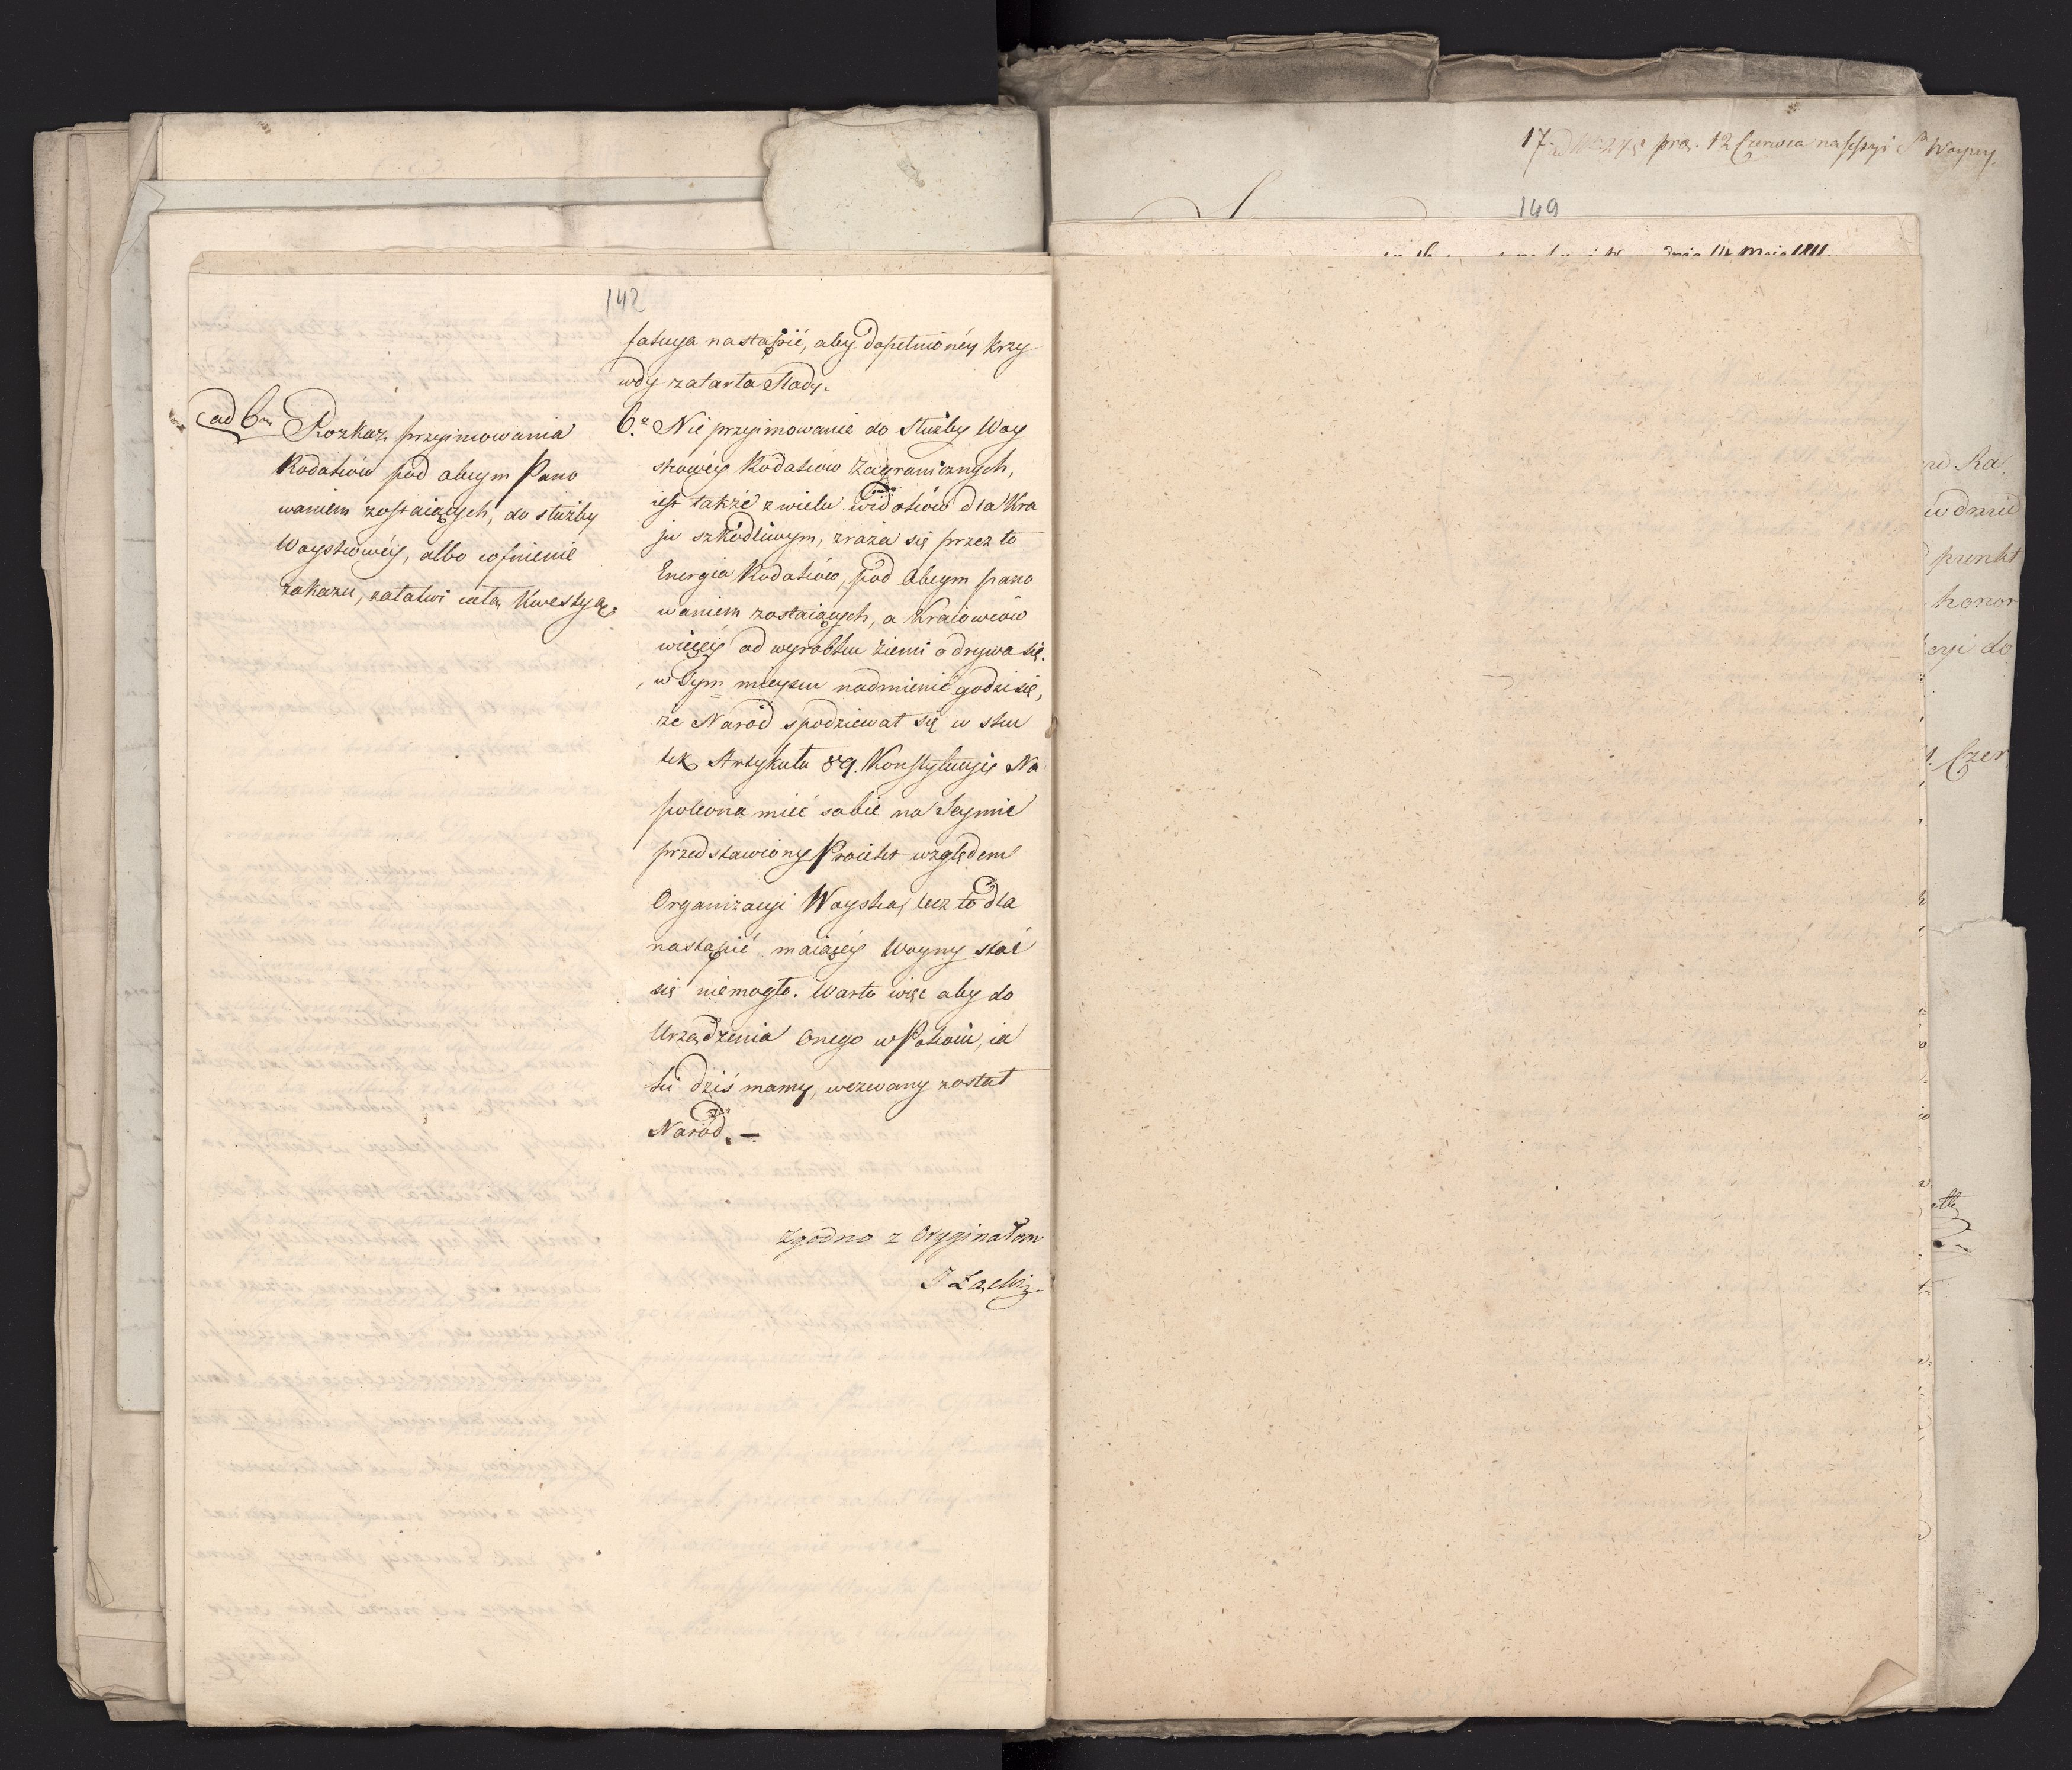 142
ad 6m Rozkaz przyimowania
Rodaków pod obcym Pano
waniem zostaiących, do służby
Woyskowéy, albo cofnienie
zakazu, załatwi całą Kwestyą.
facya nastąpić, aby dopełnionéy krzy
wdy zatarła ślady.
6.o Nie przyimowanie do Służby Woy
skowéy Rodaków Zagranicznych,
iest także z wielu widoków dla Kra
ju szkodliwym, zraża się przez to
Energia Rodaków, pod obcym pano
waniem zostaiących, a Kraiowców
więcéy od wyrobku ziemi odrywa się.
w Tym mieyscu nadmienić godzi się,
że Naród spodziewał się w sku
tek Artykułu 89. Konstytucyi Na
poleona mieć sobie na Seymie
przedstawiony Proiekt względem
Organizacyi Woyska, lecz to dla
nastąpić maiącéy Woyny stać
się niemogło. Warto więc aby do
Urządzenia onego w Pokoiu, ia
ki dziś mamy, wezwany został
Naród. —
Zgodno z Oryginałem
J Łącki
17 prez. 12 Czerwca na sessyi Woyny.
149
dnia 14 Maja 1811
Ra
punkt
honor
cyi do
Czer